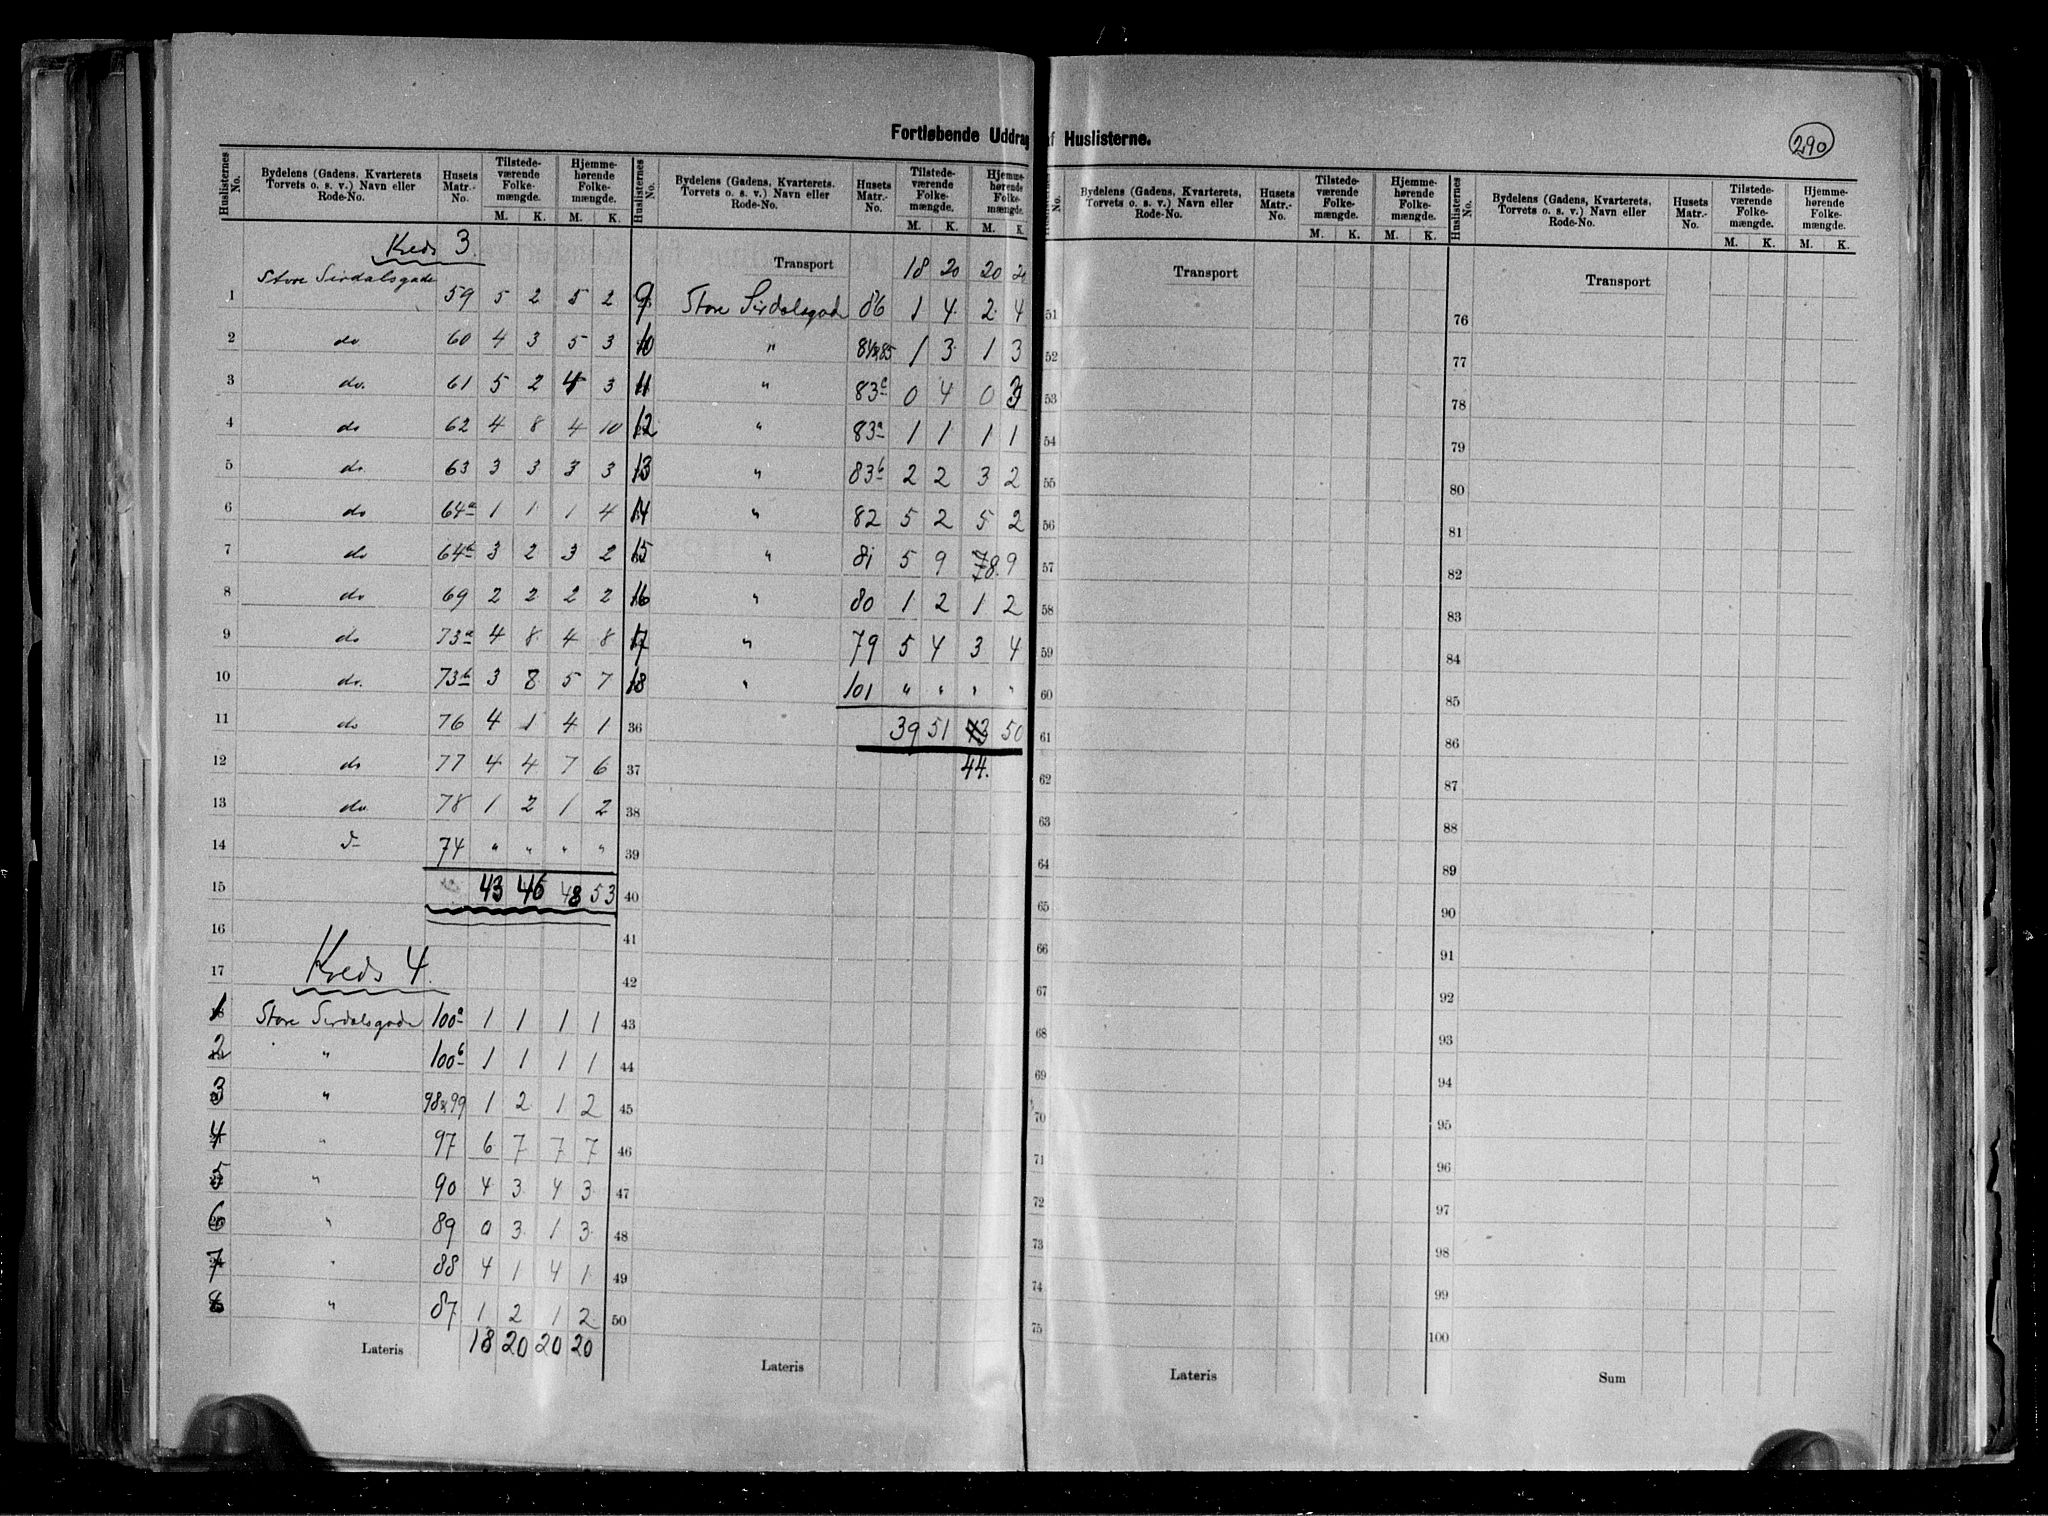 290
Fortløbende Uddrag af Huslisterne.
Huslisternes No. Bydelens (Gadens, Kvarterets Torvets o. s. v.) Navn eller Rode-No. Husets Matr.-No. Tilstede-værende Folke-mængde. M. K. Hjemme-hørende Folke-mængde. M. K.
Kreds 3.
1 Store Sirdalsgade 59 5 2 5 2
2 do 60 4 3 5 3
3 do. 61 5 2 4 3
4 do 62 4 8 4 10
5 do. 63 3 3 3 3
6 do 64a 1 1 1 4
7 do 64b 3 2 3 2
8 do 69 2 2 2 2
9 do 73a 4 8 4 8
10 do. 73b 3 8 5 7
11 do 76 4 1 4 1
12 do 77 4 4 7 6
13 do. 78 1 2 1 2
14 Do 74 " " " "
15 43 46 48 53
16
17 Kreds 4.
1 Store Sirdalsgade 100a 1 1 1 1
2 " 100b 1 1 1 1
3 " 98&99 1 2 1 2
4 " 97 6 7 7 7
5 " 90 4 3 4 3
6 " 89 0 3 1 3
7 " 88 4 1 4 1
8 " 87 1 2 1 2
Lateris 18 20 20 20
Huslisternes No. Bydelens (Gadens, Kvarterets, Torvets o. s. v.) Navn eller Rode-No. Husets Matr.-No. Tilstede-værende Folke-mængde. M. K. Hjemme-hørende Folke-mængde. M. K.
Transport 18 20 20 20
9 Store Sirdalsgade 86 1 4 2 4
10 " 84&85 1 3 1 3
11 " 83c 0 4 0 3
12 " 83a 1 1 1 1
13 " 83b 2 2 3 2
14 " 82 5 2 5 2
15 " 81 5 9 78. 9
16 " 80 1 2 1 2
17 " 79 5 4 3 4
18 " 101 " " " "
36 39 51 43 50
37 44.
38
39
40
41
42
43
44
45
46
47
48
49
50
Lateris
Huslisternes No. Bydelens (Gadens, Kvarterets, Torvets o. s. v.) Navn eller Rode-No. Husets Matr.-No. Tilstede-værende Folke-mængde. M. K. Hjemme-hørende Folke-mængde. M. K.
Transport
51
52
53
54
55
56
57
58
59
60
61
62
63
64
65
66
67
68
69
70
71
72
73
74
75
Lateris
Huslisternes No. Bydelens (Gadens, Kvarterets, Torvets o. s. v.) Navn eller Rode-No. Husets Matr.-No. Tilstede-værende Folke-mængde. M. K. Hjemme-hørende Folke-mængde. M. K.
Transport
76
77
78
79
80
81
82
83
84
85
86
87
88
89
90
91
92
93
94
95
96
97
98
99
100
Sum